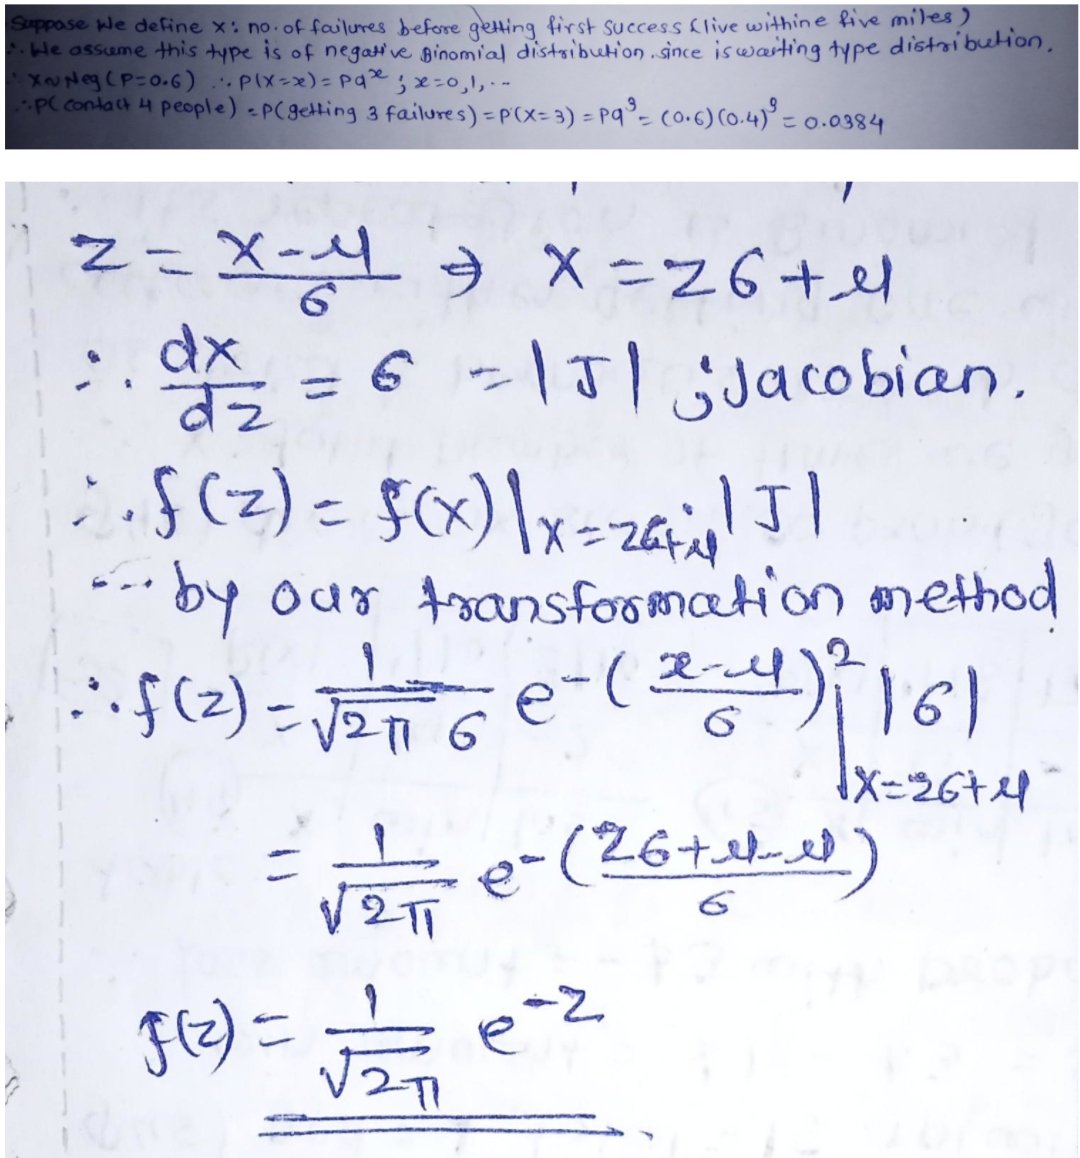 Suppose We define x: no. of failures before getting first success (live withine five miles)
∴ We assume this type is of negative Binomial distribution. since is waiting type distribution.
∴ X~Neg(P=0.6) ∴ P(X=x) = pq^x ; x=0,1,...
∴ P(contact 4 people) = P(getting 3 failures) = P(X=3) = pq^3 = (0.6)(0.4)^3 = 0.0384
z = (x-μ)/σ ⇒ x = zσ+μ
∴ dx/dz = σ = |J| ; Jacobian.
∴ f(z) = f(x)|x=zσ+μ |J|
--- by our transformation method
∴ f(z) = 1/(√2π σ) e^-((x-μ)/σ)^2 |σ| |x=zσ+μ
= 1/√2π e^-((zσ+μ-μ)/σ)
f(z) = 1/√2π e^-z